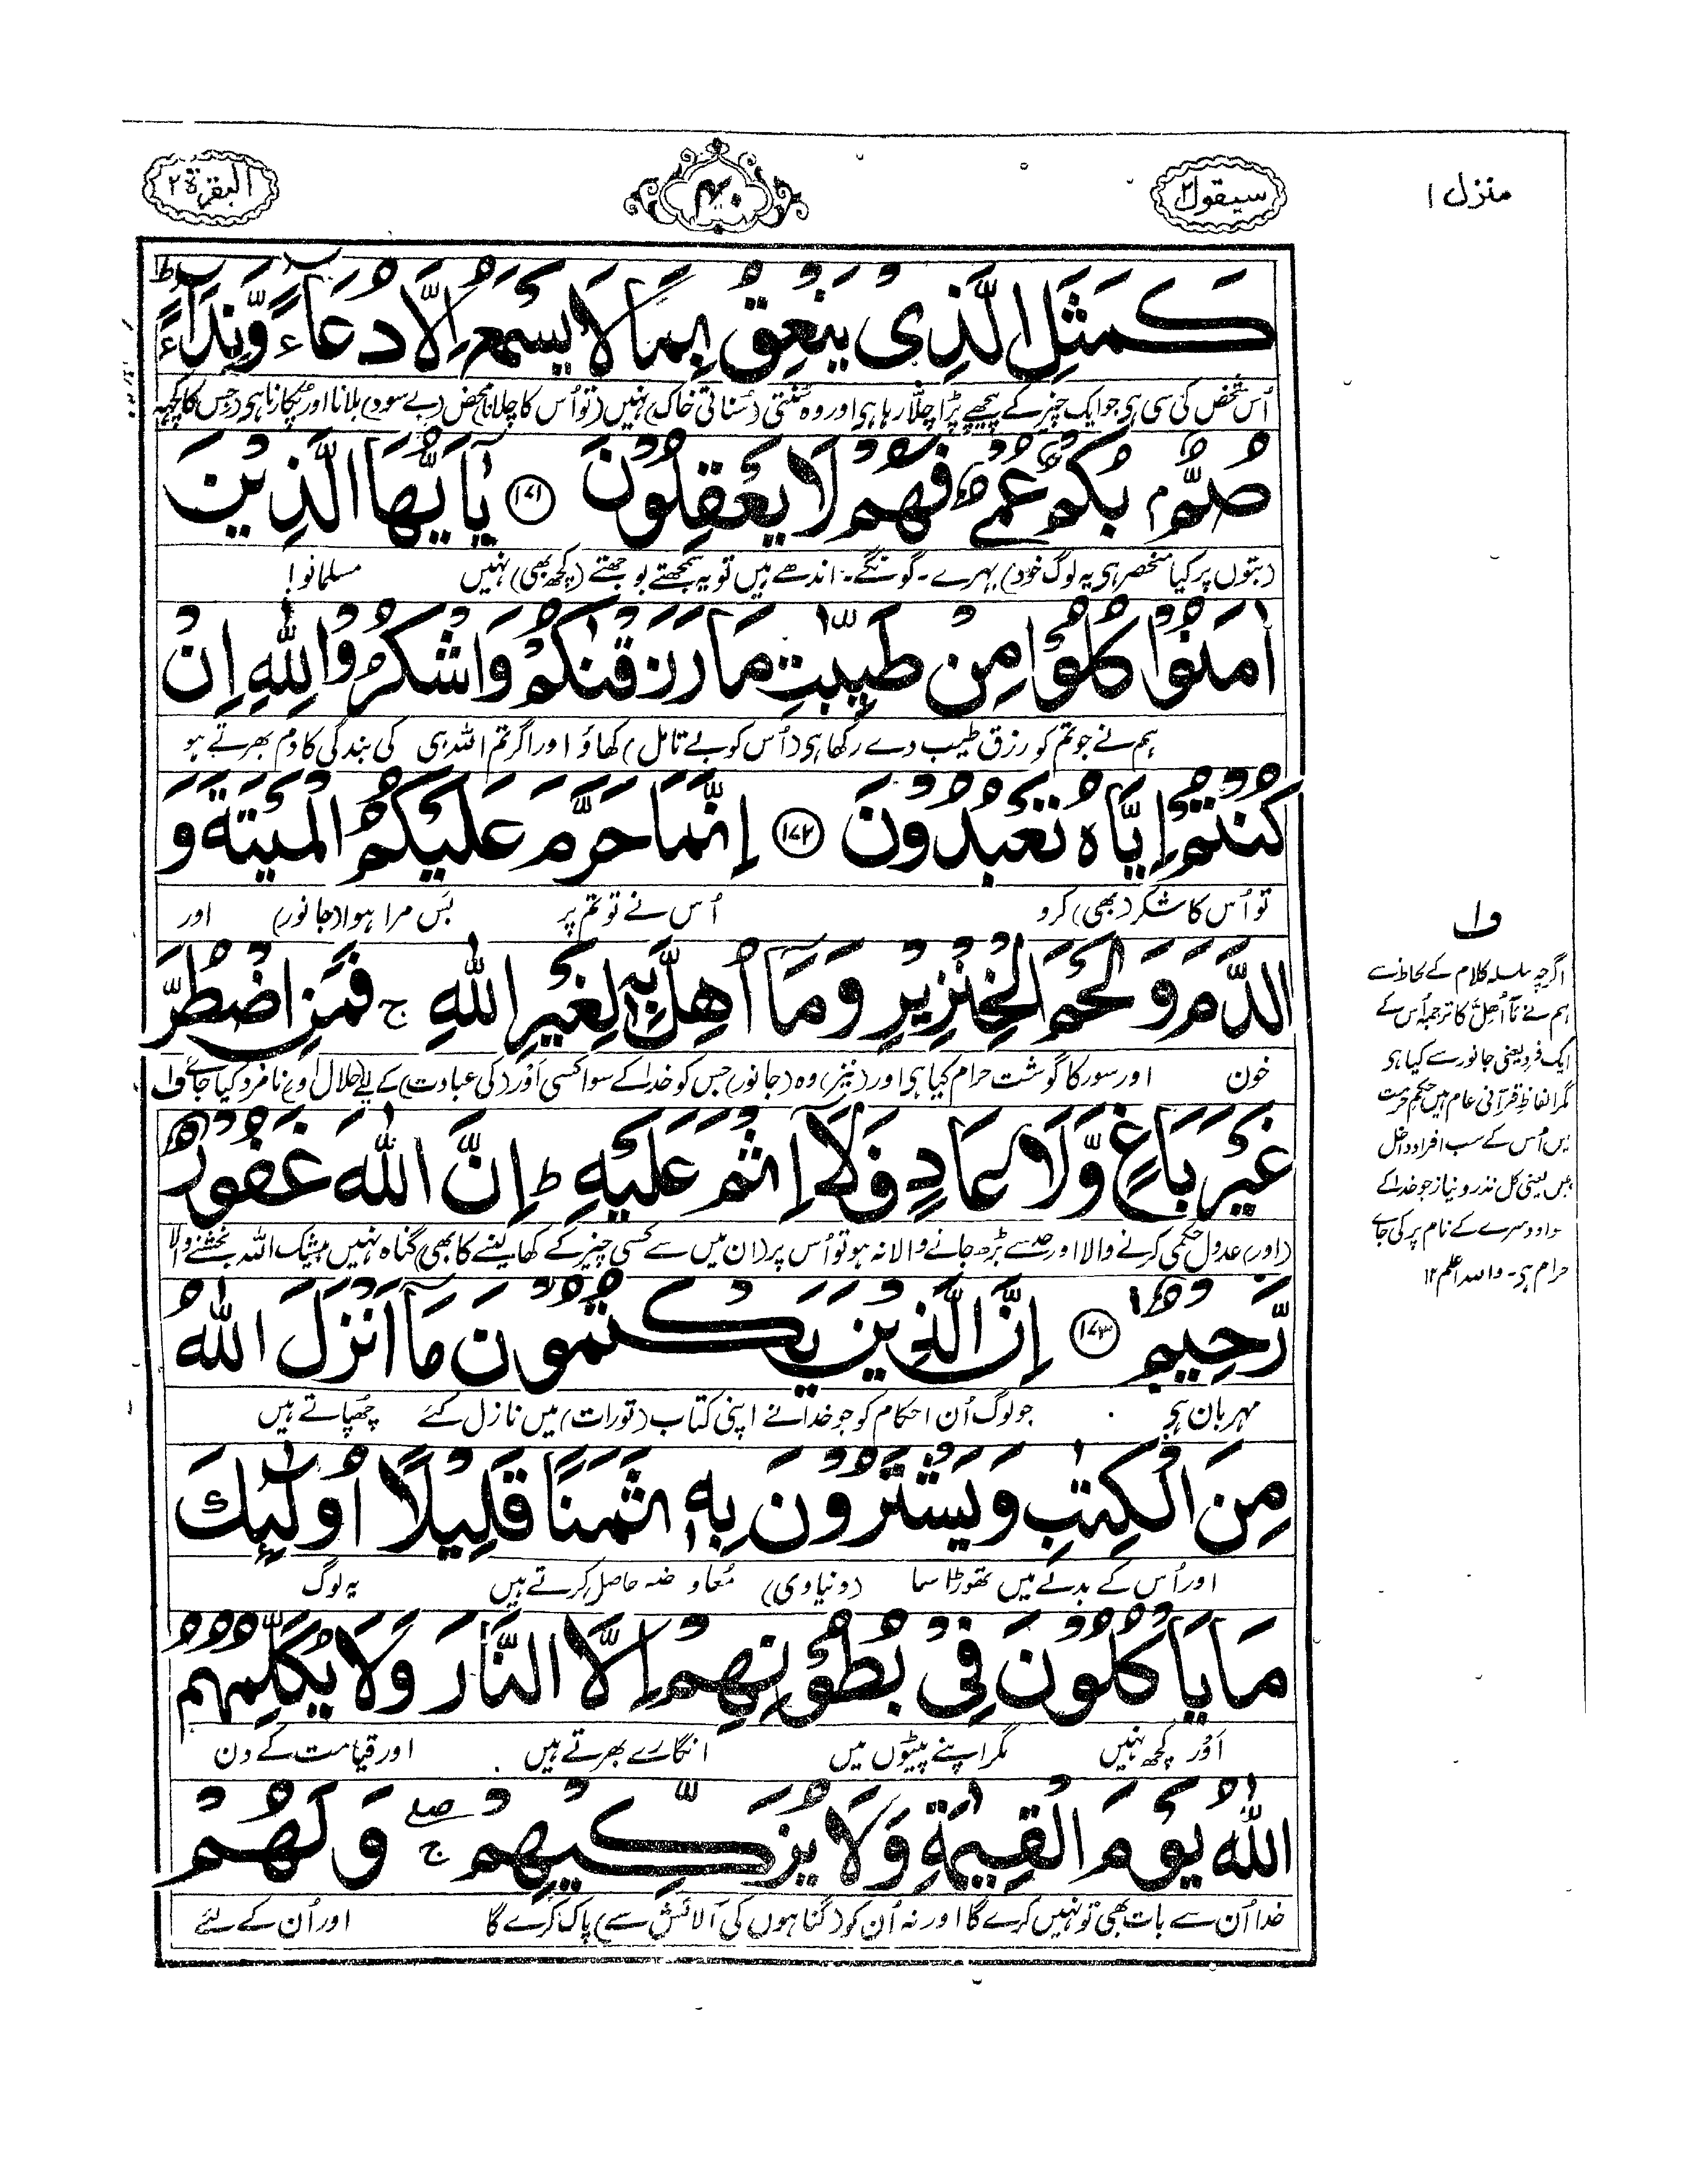 منزل ۱
سیقول ۲
۴۰
البقرة ۲
كَمَثَلِ الَّذِىْ يَنْعِقُ بِمَا لَا يَسْمَعُ اِلَّا دُعَآءً وَّنِدَآءً ؕ
اُس شخص کی سی ہی جو ایک چیز کے پیچھے پڑا چلّا رہا ہی اور وہ سُنتی (سُناتی خاک) نہیں (تو اُس کا چلانا محض (بے سود) بلانا اور پُکارنا ہی (جس کا کچھ
صُمٌّۢ بُكْمٌ عُمْىٌ فَهُمْ لَا يَعْقِلُوْنَ ﴿۱۷۱﴾ يٰۤاَيُّهَا الَّذِيْنَ
(بتوں پر کیا منحصر ہی یہ لوگ خود) بہرے۔ گونگے۔ اندھے ہیں تو یہ سمجھتے بوجھتے (کچھ بھی) نہیں مسلمانو!
اٰمَنُوْا كُلُوْا مِنْ طَيِّبٰتِ مَا رَزَقْنٰكُمْ وَاشْكُرُوْا لِلّٰهِ اِنْ
ہم نے جو تم کو رزق طیب دے رکھا ہی (اُس کو بے تامل) کھاؤ اور اگر تم اللہ ہی کی بندگی کا دم بھرتے ہو
كُنْتُمْ اِيَّاهُ تَعْبُدُوْنَ ﴿۱۷۲﴾ اِنَّمَا حَرَّمَ عَلَيْكُمُ الْمَيْتَةَ وَ
تو اُس کا شکر (بھی) کرو اُس نے تو تم پر بَس مرا ہوا (جانور) اور
الدَّمَ وَلَحْمَ الْخِنْزِيْرِ وَمَاۤ اُهِلَّ بِهٖ لِغَيْرِ اللّٰهِ ۚ فَمَنِ اضْطُرَّ
خون اور سور کا گوشت حرام کیا ہی اور (نیز) وہ (جانور) جس کو خدا کے سوا کسی اَوْر (کی عبادت) کے لیے (حلال اور) نامزد کیا جائے ف۱
غَيْرَ بَاغٍ وَّلَا عَادٍ فَلَاۤ اِثْمَ عَلَيْهِ ؕ اِنَّ اللّٰهَ غَفُوْرٌ
(اور) عدول حکمی کرنے والا اور حد سے بڑھ جانے والا نہ ہو تو اُس پر (ان میں سے کسی چیز کے کھا لینے کا بھی) گناہ نہیں بیشک اللہ بخشنے والا
رَّحِيْمٌ ﴿۱۷۳﴾ اِنَّ الَّذِيْنَ يَكْتُمُوْنَ مَاۤ اَنْزَلَ اللّٰهُ
مہربان ہی جو لوگ اُن احکام کو جو خدا نے اپنی کتاب (تورات) میں نازل کئے چھپاتے ہیں
مِنَ الْكِتٰبِ وَيَشْتَرُوْنَ بِهٖ ثَمَنًا قَلِيْلًا اُولٰٓئِكَ
اور اُس کے بدلے میں تھوڑا سا (دنیاوی) مُعاوضہ حاصل کرتے ہیں یہ لوگ
مَا يَاْكُلُوْنَ فِىْ بُطُوْنِهِمْ اِلَّا النَّارَ وَلَا يُكَلِّمُهُمُ
اَوْر کچھ نہیں مگر اپنے پیٹوں میں انگارے بھرتے ہیں اور قیامت کے دن
اللّٰهُ يَوْمَ الْقِيٰمَةِ وَلَا يُزَكِّيْهِمْ ۖۚ وَلَهُمْ
خدا اُن سے بات بھی تو نہیں کرے گا اور نہ اُن کو (گناہوں کی آلائش سے) پاک کرے گا اور اُن کے لئے
ف۱
اگرچہ سلسلہ کلام کے لحاظ سے
ہم نے مَاۤ اُهِلَّ کا ترجمہ اُس کے
ایک فرد یعنی جانور سے کیا ہی
مگر الفاظ قرآنی عام ہیں حکم حرمت
میں اُس کے سب افراد داخل
ہیں یعنی کل نذر و نیاز جو خدا کے
سوا دوسرے کے نام پر کی جائے
حرام ہی۔ واللہ اعلم ۱۲